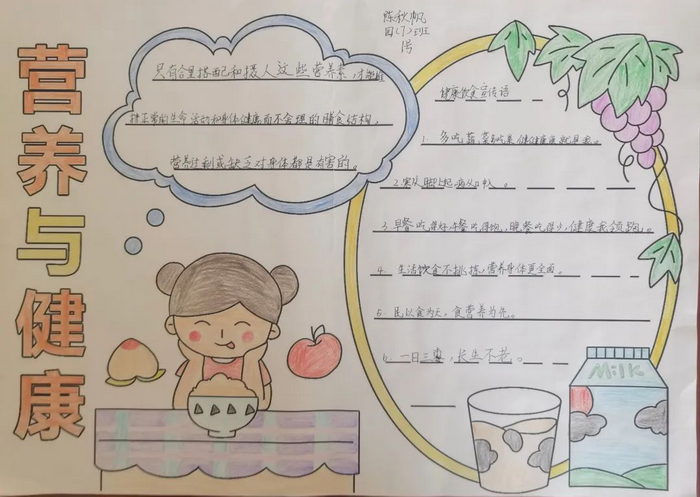 营养与健康
陈秋帆
四(7)班
1号
只有合里搭配和摄人这些营养素,才能维
持正常的生命活动和身体健康而不合理的膳食结构,
营养过剩或缺乏对身体都是有害的。
健康饮食宣传语
1. 多吃蔬菜
2.寒从脚上起病从口入。
3.早餐吃得好,午餐吃得饱,晚餐吃得少,健康我领跑。
4. 生活饮食不挑拣,营养身体更全面。
5. 民以食为天,食营养为先。
6. 一日三枣,长生不老。
Milk